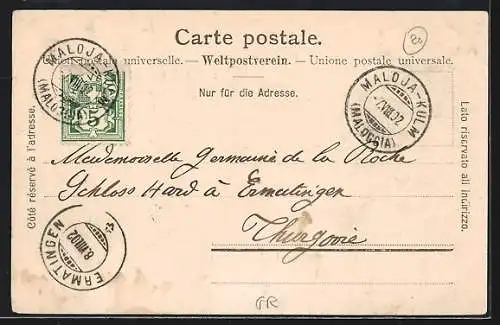 Carte postale.
Union postale universelle. — Weltpostverein. — Unione postale universale.
Nur für die Adresse.
MALOJA-KULM
(MALOGGIA)
5
MALOJA-KULM
-7.VIII.02
(MALOGGIA)
Côté réservé à l'adresse.
Lato riservato all indirizzo.
Mademoiselle Germaine de la Roche
Schloss Hard à Ermatingen
Thurgovie
ERMATINGEN
8.VIII.02
GR